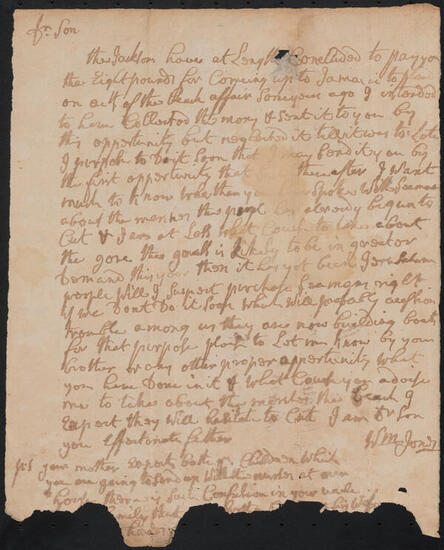 Dr Son
the Jackson have at Length Concluded to pay you
the Eight pounds for Coming up to Jamaica
on acct of the Beach affair Some years ago I intended
to have Collected the mony & Sent it to you by
this opportunity but neglected it till it was to Late
I purpose to Do it Soon that I may Send it you by
the first opportunity that thereafter I Want
much to Know whether you have Spoke With Seaman
about the the people has already begun to
Cut & I am at Loss what Course to take about
the gore the goods is Likely to be in greater
Demand this year then it has yet been
people Will I Suspect purchase Seamans right
if we Dont Do it Soon which Will probably occasion
trouble among us they are now building boats
for that purpos pleas to Let me Know by your
brother or any other proper opportunity What
you have Done in it & What Course you advise
me to take about the the Beach I
Expect they Will hesitate to Cut I am Dr Son
you Effectionate father
Wm Jones
PS your mother Expects both Children Which
you are going to Send up Will be at our
house there is Such Confusion in your
family that his Wife